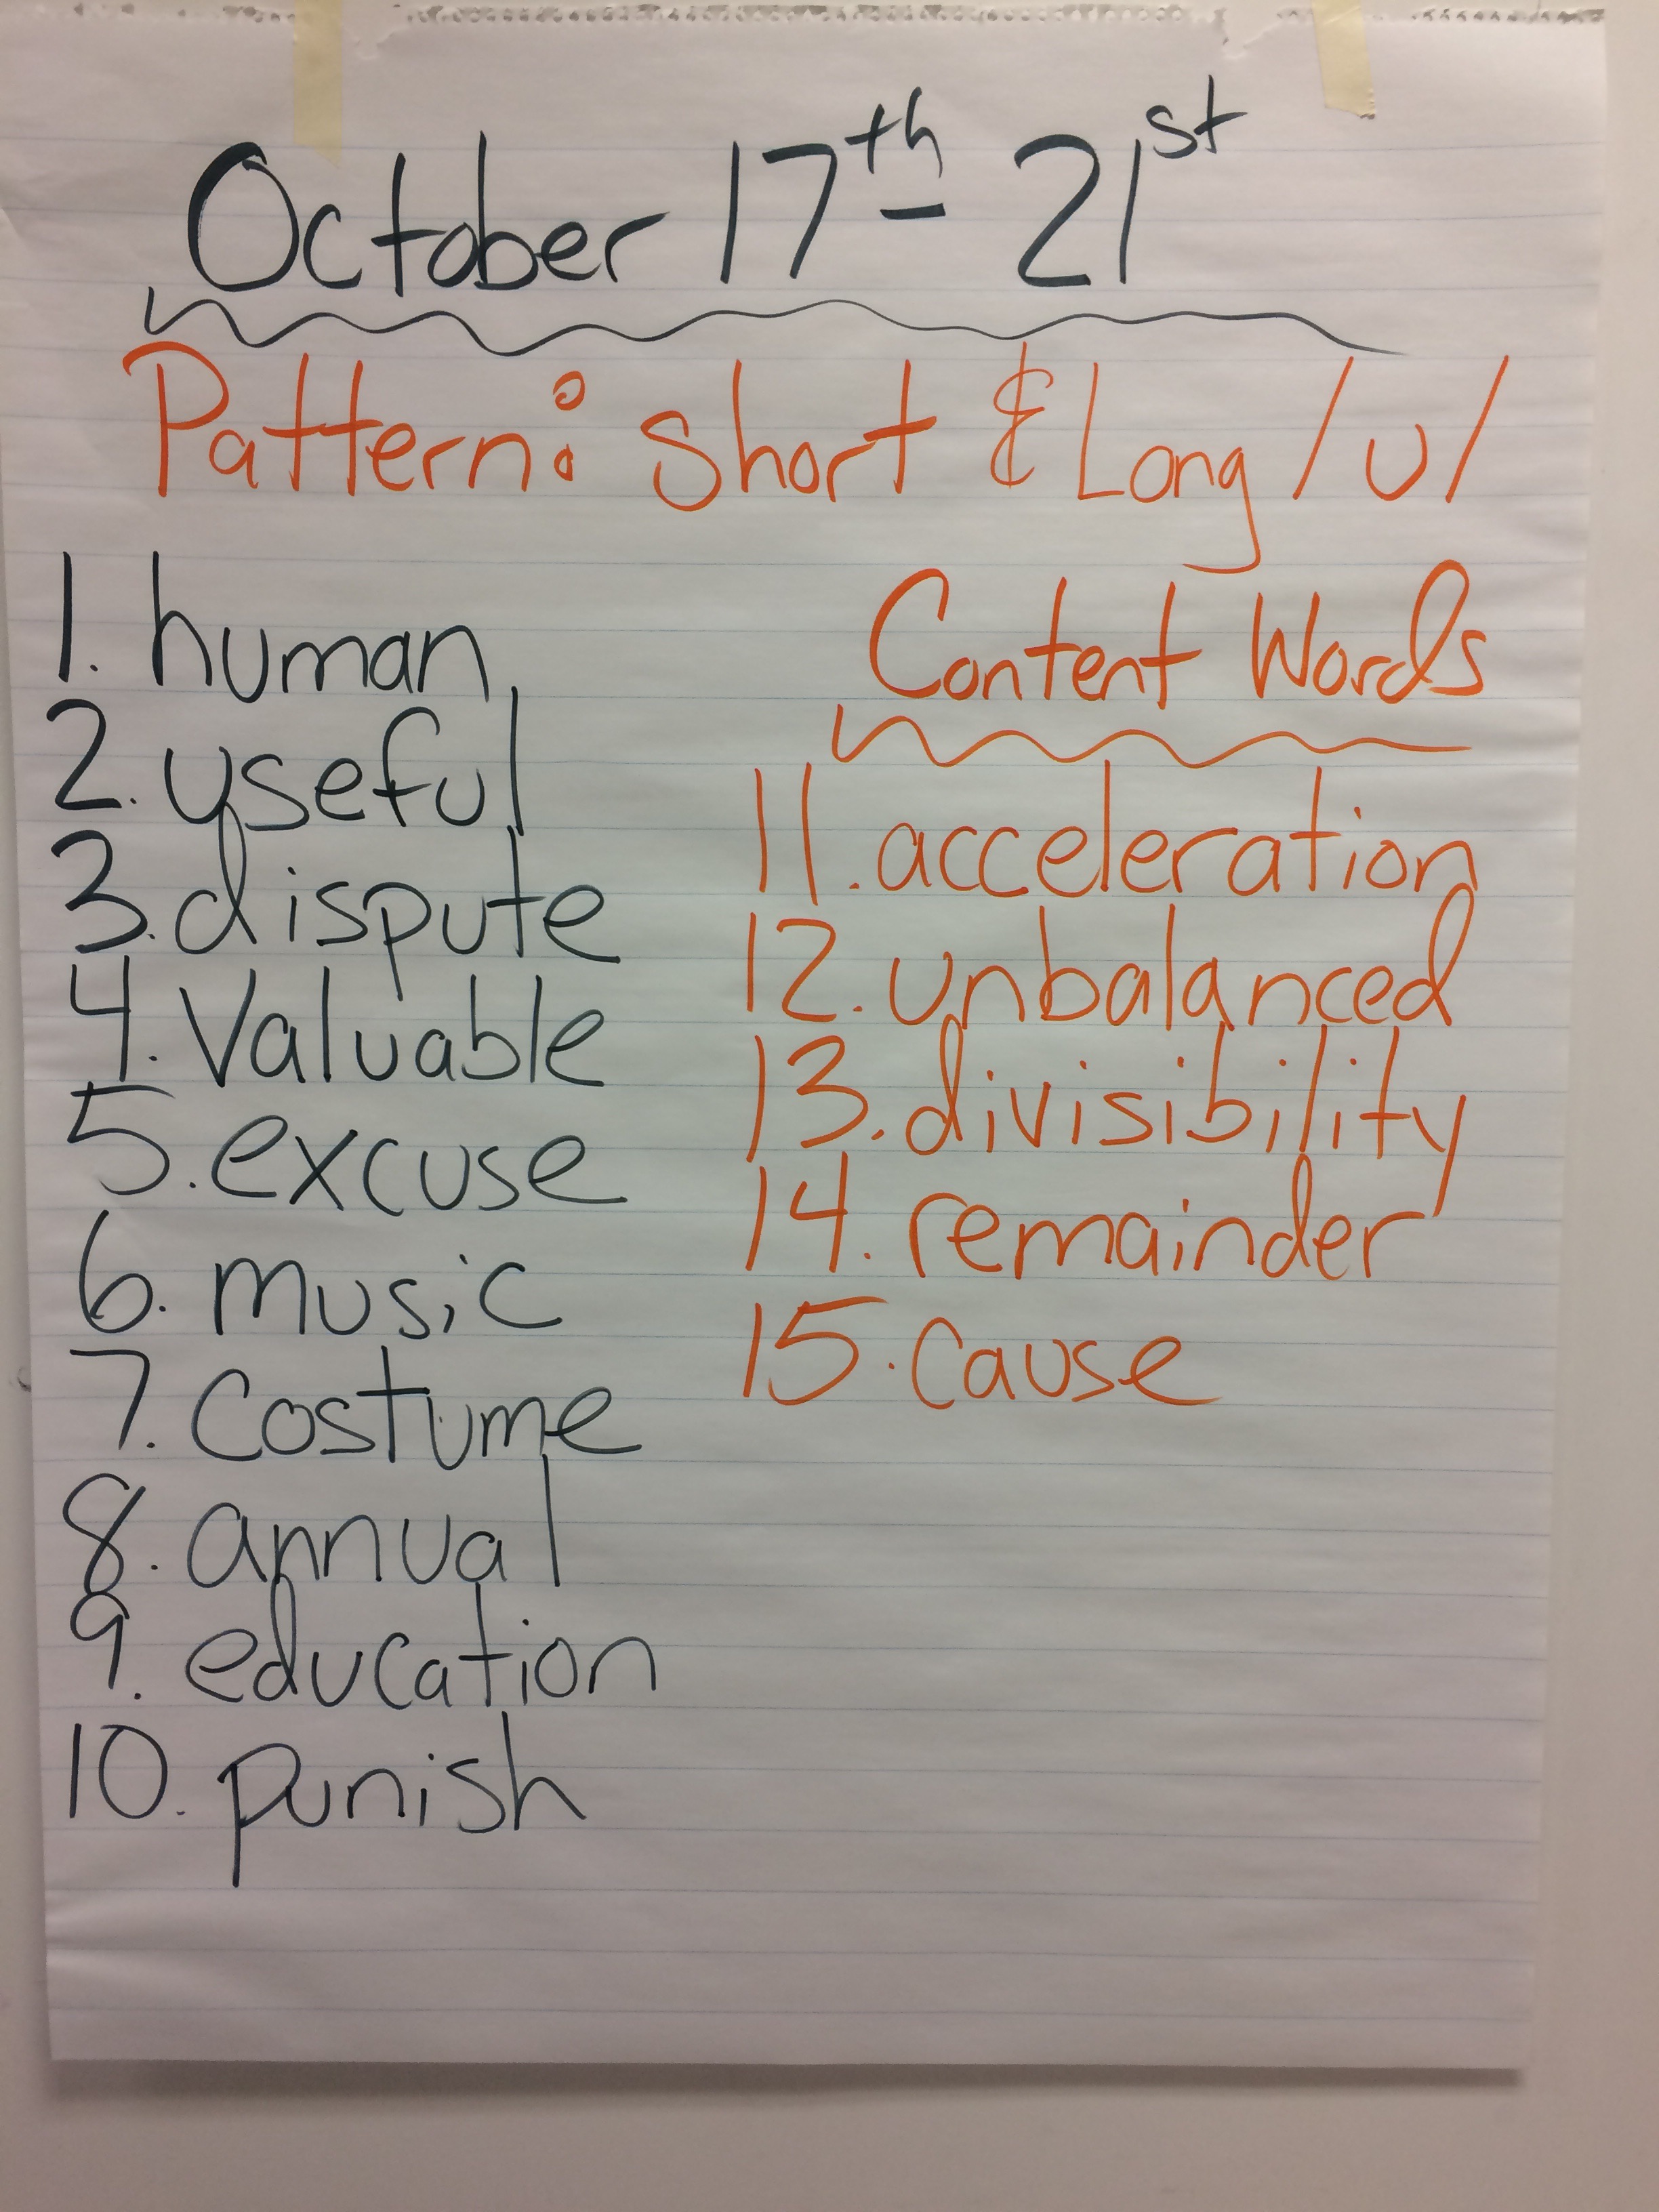 October 17th - 21st
Pattern: Short & Long /u/
1. human
2. useful
3. dispute
4. Valuable
5. excuse
6. music
7. Costume
8. annual
9. education
10. punish
Content Words
11. acceleration
12. unbalanced
13. divisibility
14. remainder
15. Cause